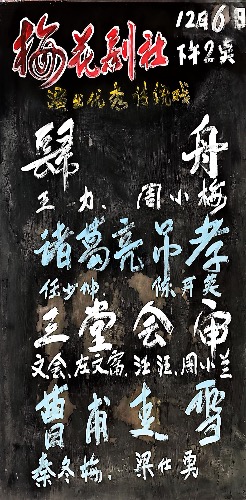 梅花剧社
12月6日
下午2点
演出优秀传统戏
歸舟
王力、周小梅
诸葛亮吊孝
任少帅 陈开英
三堂会审
文会、左文富、汪汪、周小兰
曹甫走雪
秦冬梅、梁仕勇